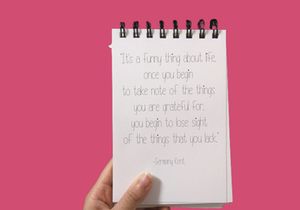 "It's a funny thing about life,
once you begin
to take note of the things
you are grateful for,
you begin to lose sight
of the things that you lack."
-Germany Kent